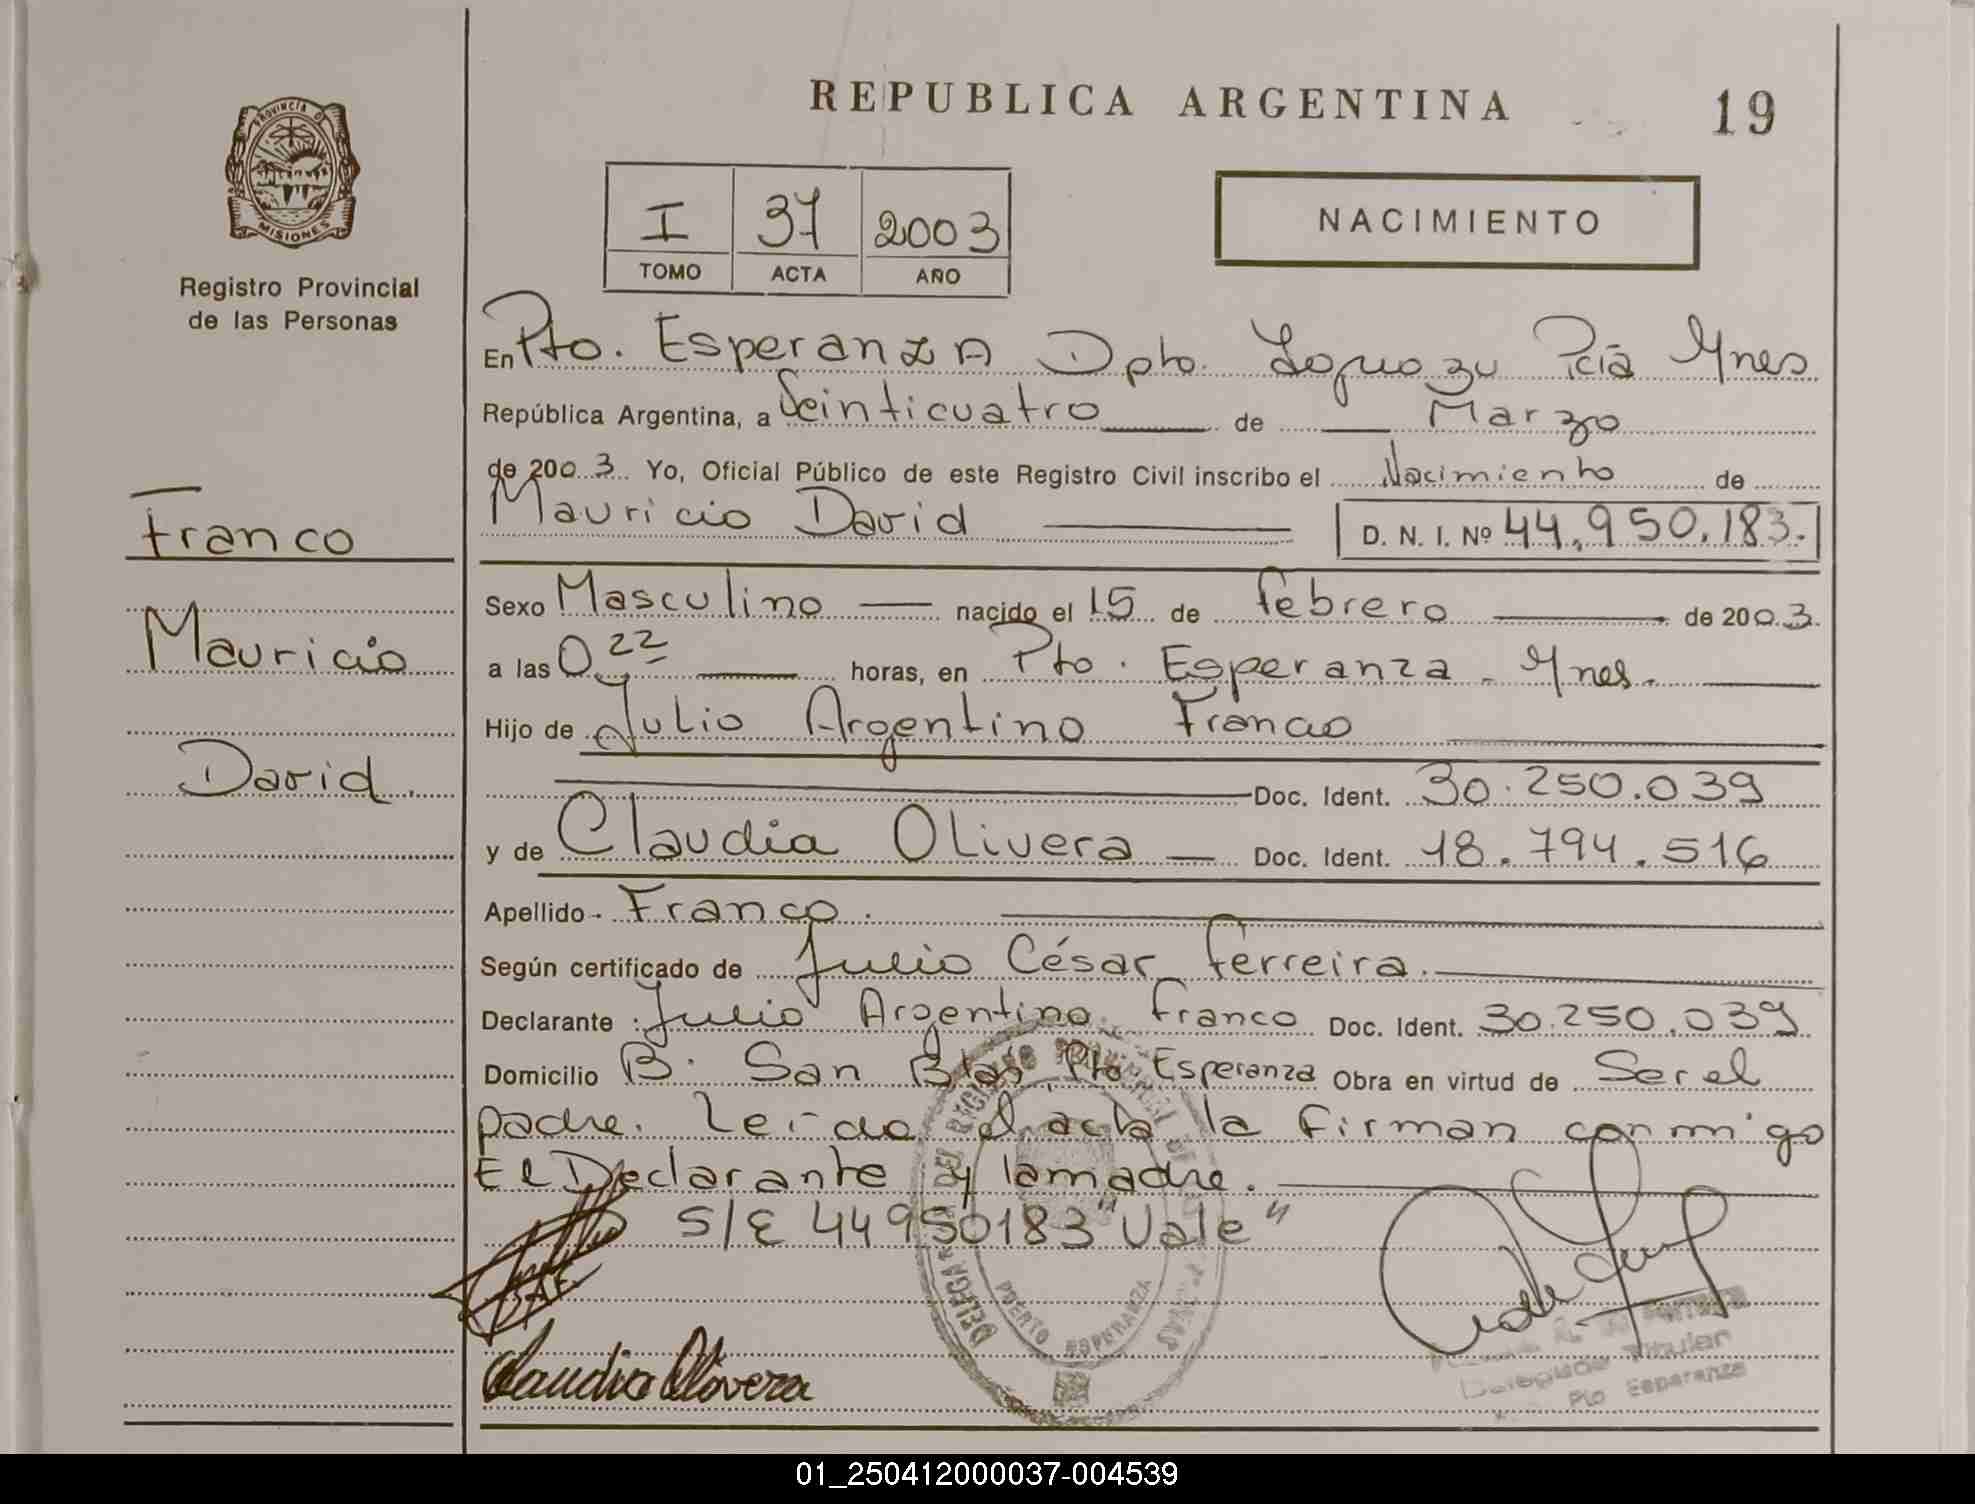 REPUBLICA ARGENTINA
19
PROVINCIA DE
MISIONES
Registro Provincial
de las Personas
I 37 2003
TOMO ACTA AÑO
NACIMIENTO
En Pto. Esperanza Dpto. Iguazu Pcia Mnes
República Argentina, a Veinticuatro de Marzo
de 2003 Yo, Oficial Público de este Registro Civil inscribo el Nacimiento de
Mauricio David D. N. I. Nº 44.950.183.
Franco
Mauricio
David.
Sexo Masculino nacido el 15 de febrero de 2003.
a las 0,22 horas, en Pto. Esperanza - Mnes.
Hijo de Julio Argentino Franco
Doc. Ident. 30.250.039
y de Claudia Olivera Doc. Ident. 18.794.516
Apellido Franco.
Según certificado de Julio César Ferreira.
Declarante Julio Argentino Franco Doc. Ident. 30.250.039
Domicilio B: San Blas Pto Esperanza Obra en virtud de Ser el
padre. Leida el acta la firman conmigo
El Declarante y la madre.
S/E 44950183 "Vale"
J.A.F.
Claudia Olivera
PUERTO ESPERANZA
Delegado Titular
Pto Esperanza
01_250412000037-004539